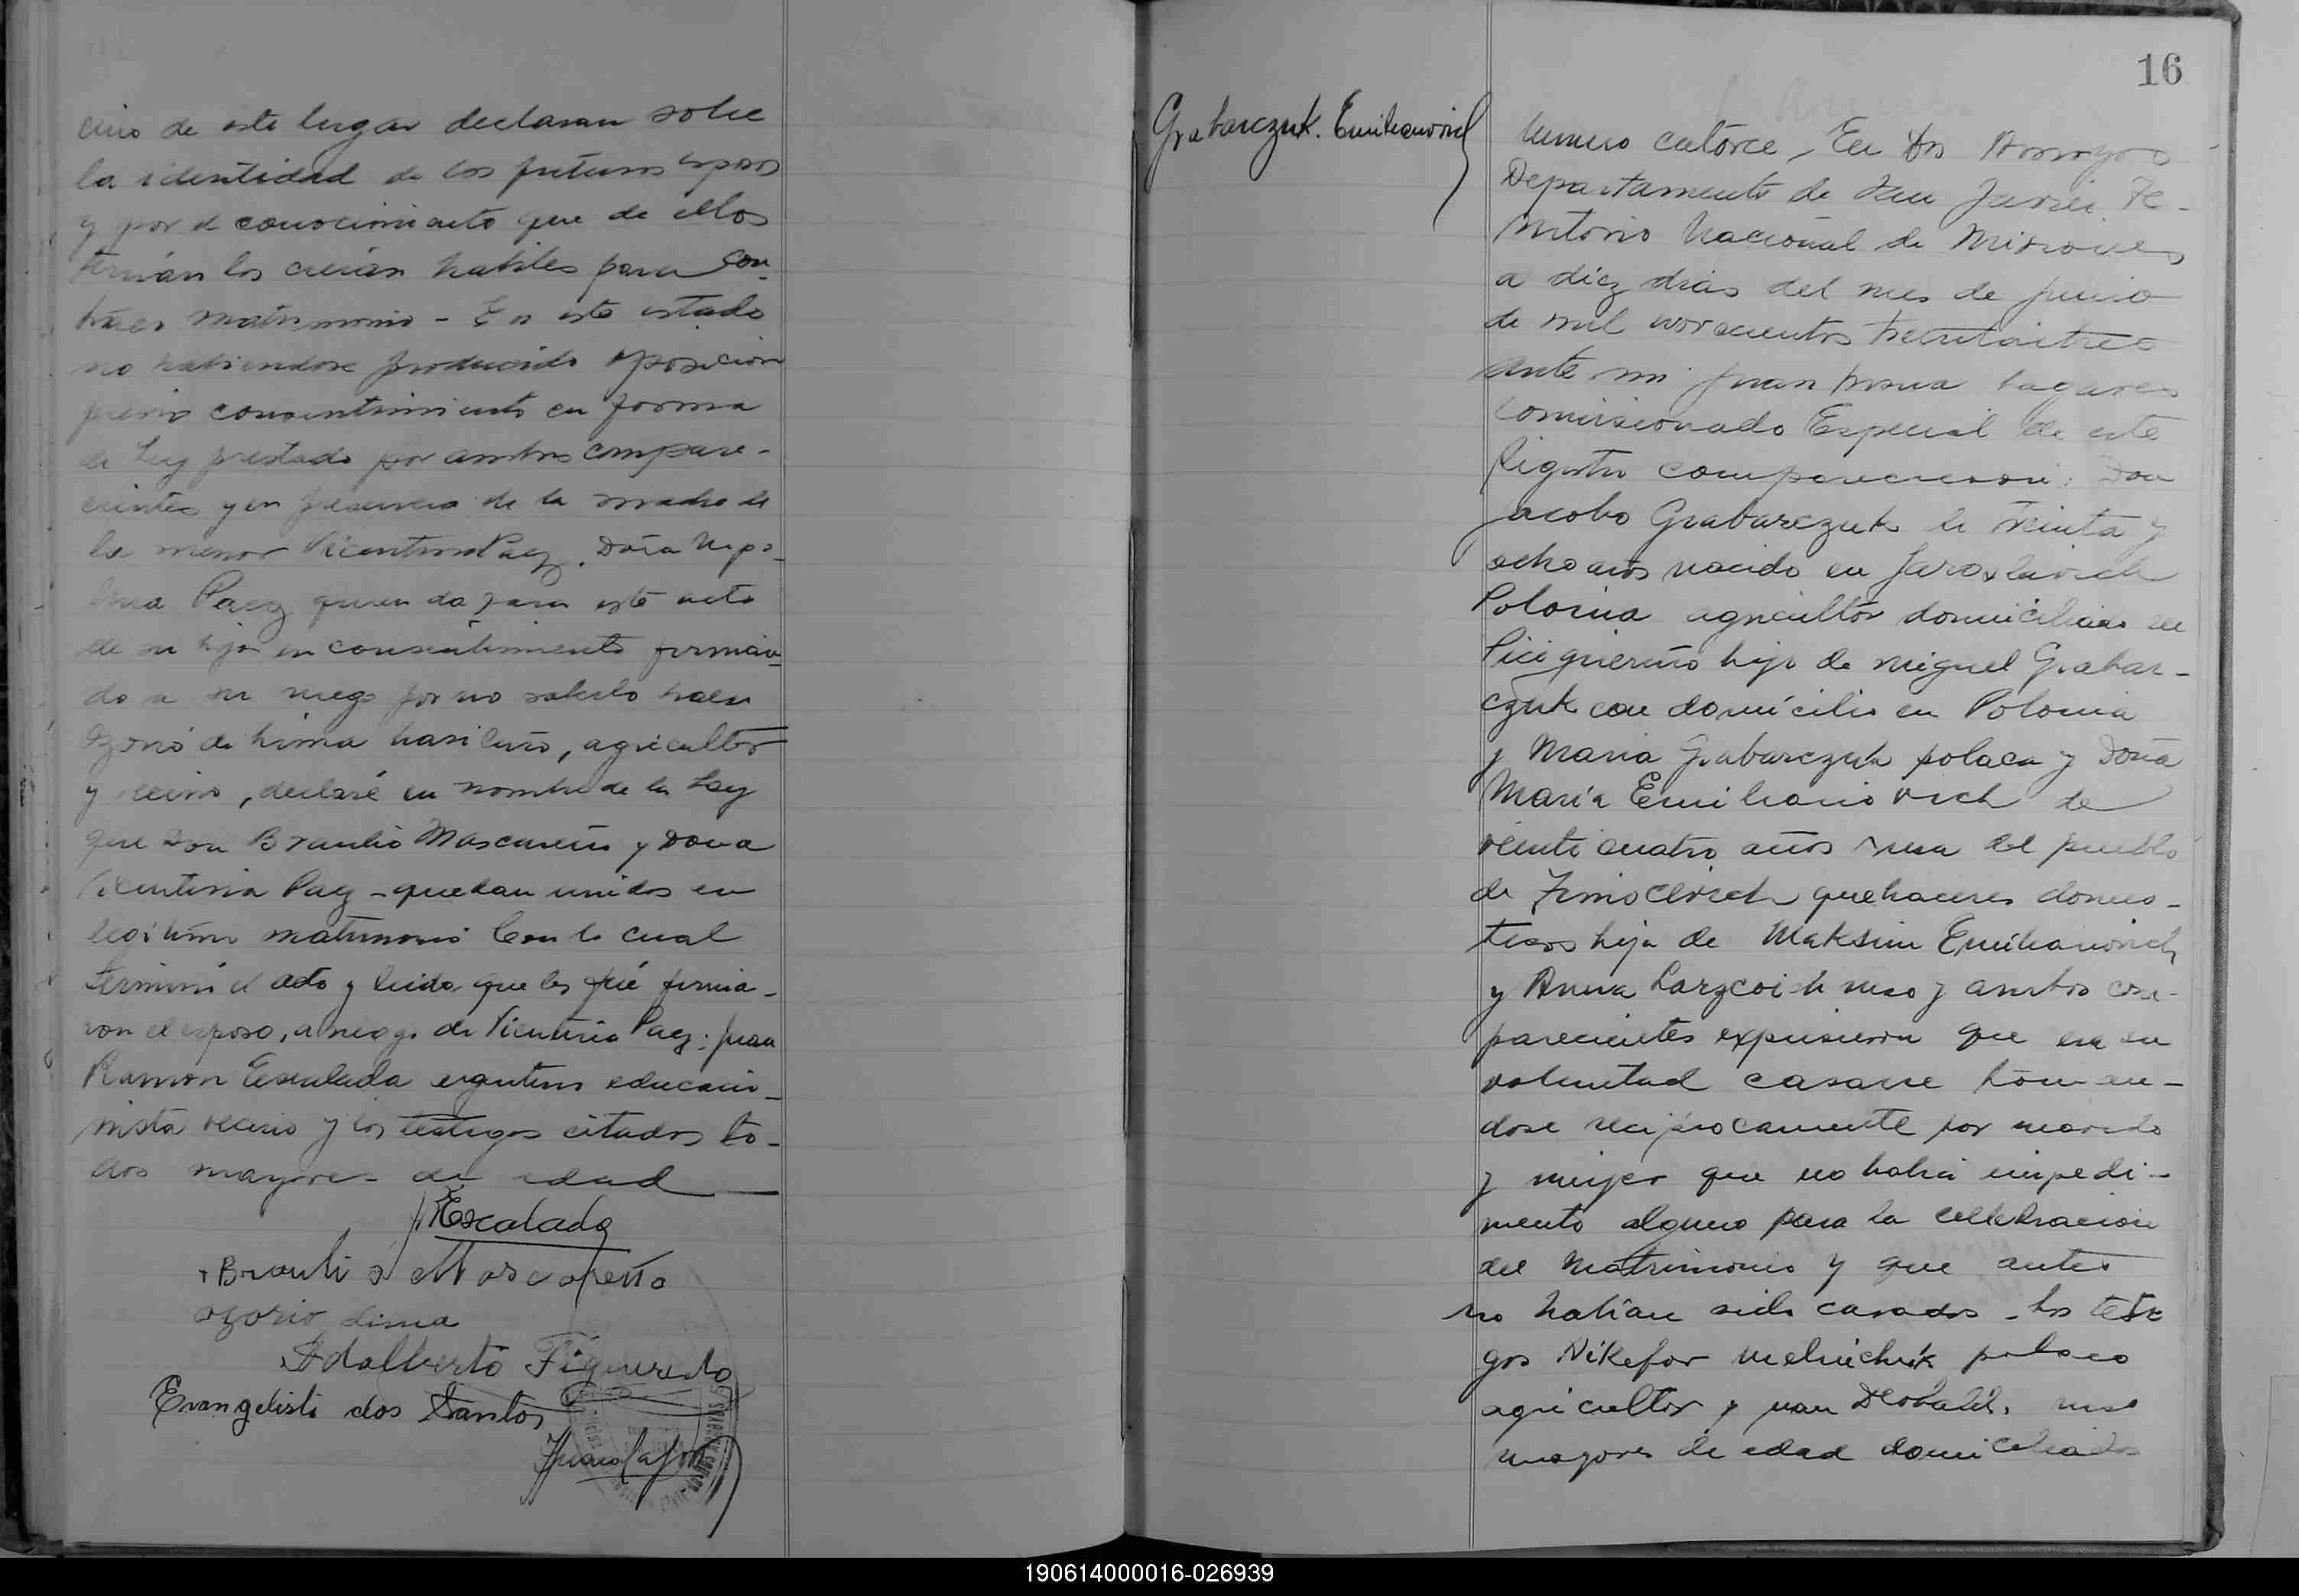 cino de este lugar declaran sobre
la identidad de los futuros esposos
y por el conocimiento que de ellos
tenían los creían habiles para con-
traer matrimonio - En este estado
no habiendose producido oposicion
previo consentimiento en forma
de Ley prestado por ambos compare-
cientes y en presencia de la madre de
la menor Vicentina Paez. Doña
Paez quien da para este acto
de su hija su consentimiento firman-
do a su ruego por no saberlo hacer
Ozorio de Lima brasileño, agricultor
y vecino, declaré en nombre de la Ley
que Don Braulio Mascareño y Doña
Vicentina Paez - quedan unidos en
legitimo matrimonio Con lo cual
terminó el acto y leida que les fué firma-
ron el esposo, a ruego de Vicentina Paez: Juan
Ramon Escalada argentino educacio-
nista vecino y los testigos citados to-
dos mayores de edad
Escalada
Braulio Mascareño
ozorio Lima
Adalberto Figueredo
Evangelista dos Santos
16
Grabarczuk. Emilianovich
Numero catorce, En Dos Arroyos
Departamento de San Javier Te-
rritorio Nacional de Misiones
a diez dias del mes de junio
de mil novecientos treintaitres
ante mi Juan
Comisionado Especial de este
Registro comparecieron: Don
Jacobo Grabarczuk de treinta y
ocho años nacido en Jaroslavich
Polonia agricultor domiciliado en
Picigueruno hijo de Miguel Grabar-
czuk con domicilio en Polonia
y Maria Grabarczuk polaca y Doña
María Emilianovich de
veinticuatro años rusa del pueblo
de quehaceres domes-
ticos hija de Maksim Emilianovich
y Anna ruso y ambos com-
parecientes expusieron que era su
voluntad casarse toman-
dose reciprocamente por marido
y mujer que no habia impedi-
mento alguno para la celebracion
del Matrimonio y que antes
no habian sido casados - Los testi
gos Nikefor Melnichuk polaco
agricultor y Juan ruso
mayores de edad domiciliados
190614000016-026939